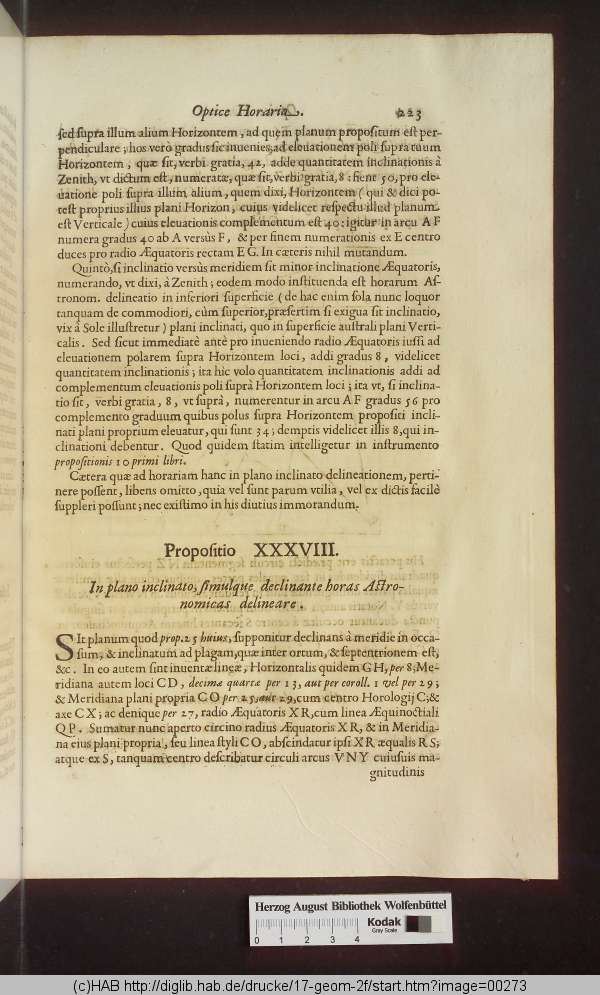 Optice Horariæ. 223
sed supra illum alium Horizontem, ad quem planum propositum est per-
pendiculare; hos verò gradus sic inuenies; ad eleuationem poli supra tuum
Horizontem, quæ sit, verbi gratia, 42, adde quantitatem inclinationis à
Zenith, vt dictum est, numeratæ, quæ sit, verbi gratia, 8: fient 50, pro ele-
uatione poli supra illum alium, quem dixi, Horizontem (qui & dici po-
test proprius illius plani Horizon, cuius videlicet respectu illud planum
est Verticale) cuius eleuationis complementum est 40: igitur in arcu A F
numera gradus 40 ab A versùs F, & per finem numerationis ex E centro
duces pro radio Æquatoris rectam E G. In cæteris nihil mutandum.
Quintò, si inclinatio versùs meridiem sit minor inclinatione Æquatoris,
numerando, vt dixi, à Zenith; eodem modo instituenda est horarum As-
tronom. delineatio in inferiori superficie (de hac enim sola nunc loquor
tanquam de commodiori, cùm superior, præsertim si exigua sit inclinatio,
vix à Sole illustretur) plani inclinati, quo in superficie australi plani Verti-
calis. Sed sicut immediatè antè pro inueniendo radio Æquatoris iussi ad
eleuationem polarem supra Horizontem loci, addi gradus 8, videlicet
quantitatem inclinationis; ita hic volo quantitatem inclinationis addi ad
complementum eleuationis poli suprà Horizontem loci; ita vt, si inclina-
tio sit, verbi gratia, 8, vt suprà, numerentur in arcu A F gradus 56 pro
complemento graduum quibus polus supra Horizontem propositi incli-
nati plani proprium eleuatur, qui sunt 34; demptis videlicet illis 8, qui in-
clinationi debentur. Quod quidem statim intelligetur in instrumento
propositionis 10 primi libri.
Cætera quæ ad horariam hanc in plano inclinato delineationem, perti-
nere possent, libens omitto, quia vel sunt parum vtilia, vel ex dictis facilè
suppleri possunt; nec existimo in his diutius immorandum.
Propositio XXXVIII.
In plano inclinato, simulque declinante horas Astro-
nomicas delineare.
SIt planum quod prop. 25 huius, supponitur declinans à meridie in occa-
sum, & inclinatum ad plagam, quæ inter ortum, & septentrionem est,
&c. In eo autem sint inuentæ lineæ, Horizontalis quidem G H, per 8; Me-
ridiana autem loci C D, decimæ quartæ per 13, aut per coroll. 1 vel per 29;
& Meridiana plani propria C O per 25, aut 29, cum centro Horologij C; &
axe C X; ac denique per 27, radio Æquatoris X R, cum linea Æquinoctiali
Q P. Sumatur nunc aperto circino radius Æquatoris X R, & in Meridia-
na eius plani propria, seu linea styli C O, abscindatur ipsi X R æqualis R S;
atque ex S, tanquam centro describatur circuli arcus V N Y cuiusuis ma-
gnitudinis
Herzog August Bibliothek Wolfenbüttel
Kodak
Gray Scale
0 1 2 3 4
(c)HAB http://diglib.hab.de/drucke/17-geom-2f/start.htm?image=00273